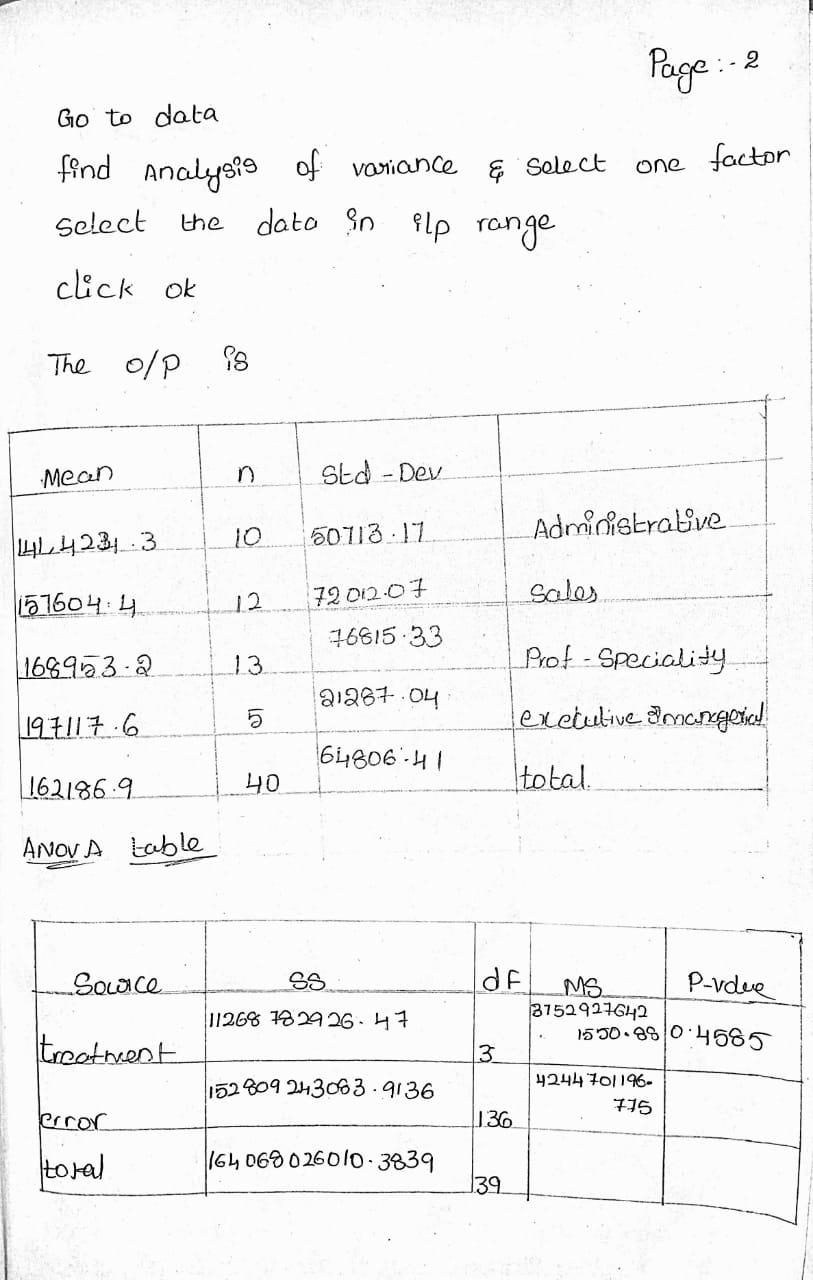 Page :- 2
Go to data
find Analysis of variance & Select one factor
select the data in i/p range
click ok
The o/p is
Mean n Std - Dev
10 50713.17 Administrative
157604.4 12 72012.07 Sales
168953.2 13 76815.33 Prof - Speciality
197117.6 5 21287.04
162186.9 40 64806.41 total.
ANOVA table
Source SS df MS P-value
treatment 11268 782926.47 3 3752927642 . 1550.88 0.4585
error 152809243083.9136 136 4244701196. 775
total 164068026010.3839 39